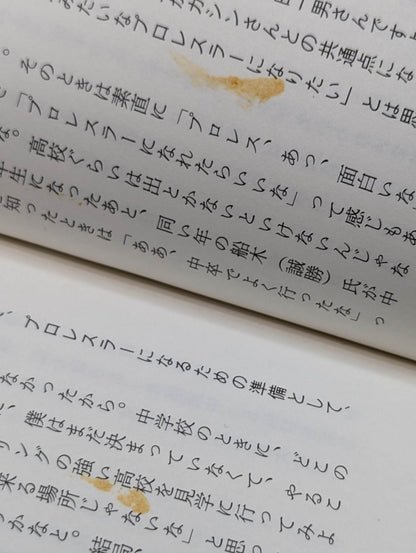 男さんですよ
ガジンさんとの共通点にな
みたいなプロレスラーになりたい」とは思
。そのときは素直に「プロレス、あっ、面白いな
「プロレスラーになれたらいいな」って感じもあ
な。高校ぐらいは出とかないといけないんじゃな
学生になったあと、同い年の船木（誠勝）氏が中
知ったときは「ああ、中卒でよく行ったな」っ
、プロレスラーになるための準備として、
なかったから。中学校のときに、どこの
、僕はまだ決まっていなくて、やるこ
リングの強い高校を見学に行ってみよ
来る場所じゃないな」と思っ
かなと。結局